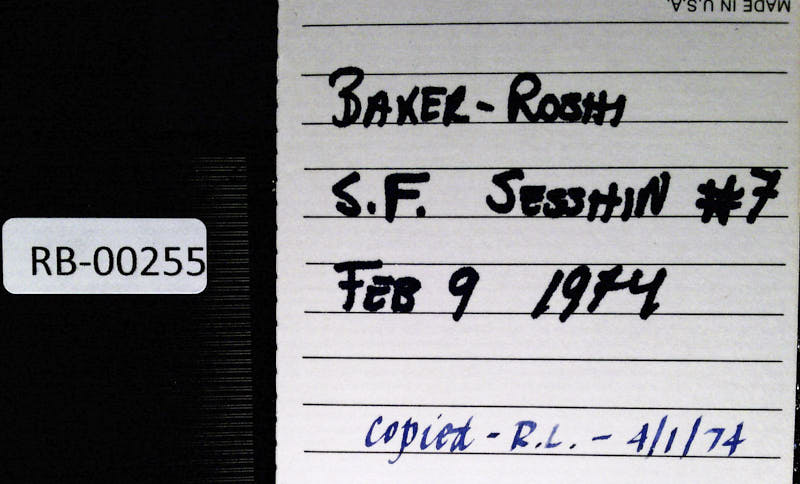 MADE IN U.S.A.
BAKER-ROSHI
S.F. SESSHIN #7
FEB 9 1974
RB-00255
copied - R.L. - 4/1/74